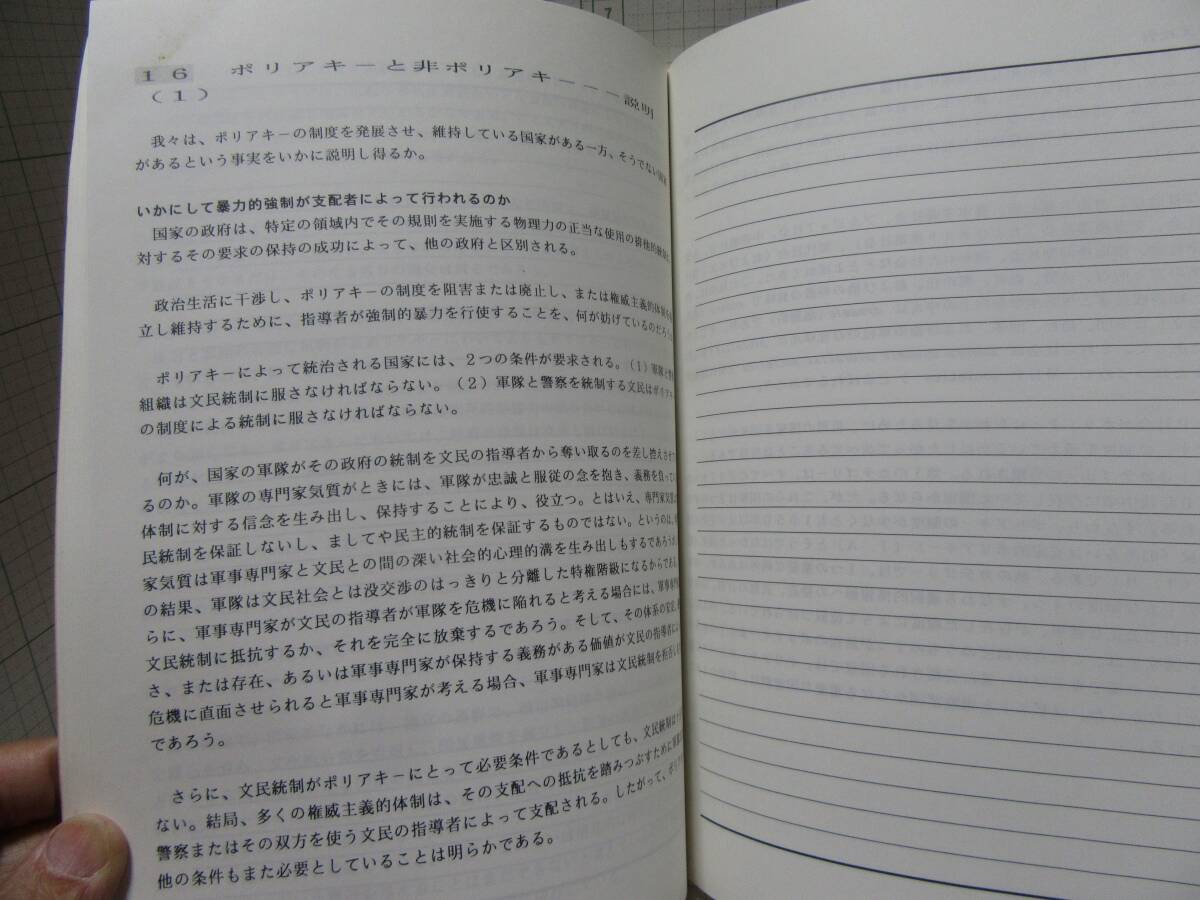 7
16　ポリアキーと非ポリアキー――説明
（1）
我々は、ポリアキーの制度を発展させ、維持している国家がある一方、そうでない国家
があるという事実をいかに説明し得るか。
いかにして暴力的強制が支配者によって行われるのか
国家の政府は、特定の領域内でその規則を実施する物理力の正当な使用の排他的
対するその要求の保持の成功によって、他の政府と区別される。
政治生活に干渉し、ポリアキーの制度を阻害または廃止し、または権威主義的体制を
立し維持するために、指導者が強制的暴力を行使することを、何が妨げているのだろう
ポリアキーによって統治される国家には、2つの条件が要求される。（1）軍隊と警察
組織は文民統制に服さなければならない。（2）軍隊と警察を統制する文民はポリアキ
の制度による統制に服さなければならない。
何が、国家の軍隊がその政府の統制を文民の指導者から奪い取るのを差し控えさせ
るのか。軍隊の専門家気質がときには、軍隊が忠誠と服従の念を抱き、義務を負ってい
体制に対する信念を生み出し、保持することにより、役立つ。とはいえ、専門家気質は
民統制を保証しないし、ましてや民主的統制を保証するものではない。というのは、
家気質は軍事専門家と文民との間の深い社会的心理的溝を生み出しもするであろうが、
の結果、軍隊は文民社会とは没交渉のはっきりと分離した特権階級になるからである。
らに、軍事専門家が文民の指導者が軍隊を危機に陥れると考える場合には、軍事専門
文民統制に抵抗するか、それを完全に放棄するであろう。そして、その体系の安定、
さ、または存在、あるいは軍事専門家が保持する義務がある価値が文民の指導者によ
危機に直面させられると軍事専門家が考える場合、軍事専門家は文民統制を拒否する
であろう。
さらに、文民統制がポリアキーにとって必要条件であるとしても、文民統制は
ない。結局、多くの権威主義的体制は、その支配への抵抗を踏みつぶすために軍隊
警察またはその双方を使う文民の指導者によって支配される。したがって、ポリア
他の条件もまた必要としていることは明らかである。